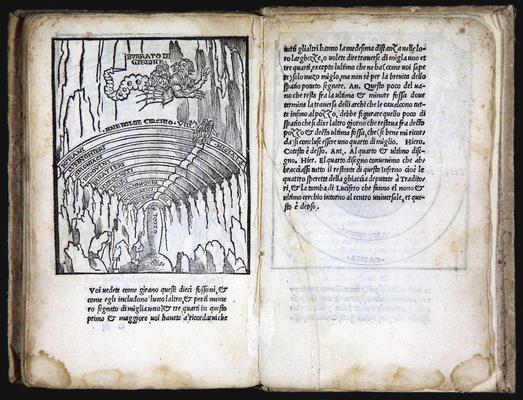 BVRRATO DI
GIRIONE
MALE BOLGE CERCHIO · VIII
Voi vedete come girano questi dieci fossoni, &
come egli includono luno laltro, & per il nume
ro segnato di miglia uno & tre quarti in questo
primo & maggiore voi havete a ricordarvi che
tutti gli altri hanno la medesima distanza nelle lo-
ro larghezze, o volete dire traverse di miglia uno et
tre quarti, excepto lultimo che ne ha (come voi sape
te) solo mezo miglo, ma non sè per la brevita dello
spatio potuto segnare. An. Questo poco del va-
no che resta fra la ultima & minore fossa dove
termina la traversa delli archi che le cavalcono tut-
te infino al pozzo, debbe figurare quello poco di
spatio che si dire laltro giorno che restava fra decto
pozzo & decta ultima fossa, che se bene mi ricor
da si concluse essere uno quarto di miglio. Hiero.
Cotesto è desso. Ant. Al quarto & ultimo dise-
gno. Hier. El quarto disegno conviene che ab
bracciassi tutto il restante di questo Inferno cioè le
quattro sperette della ghiaccia deputate à Tradito
ri, & la tomba di Lucifero che finno el nono &
ultimo cerchio intorno al centro universale, et que
sto è desso.